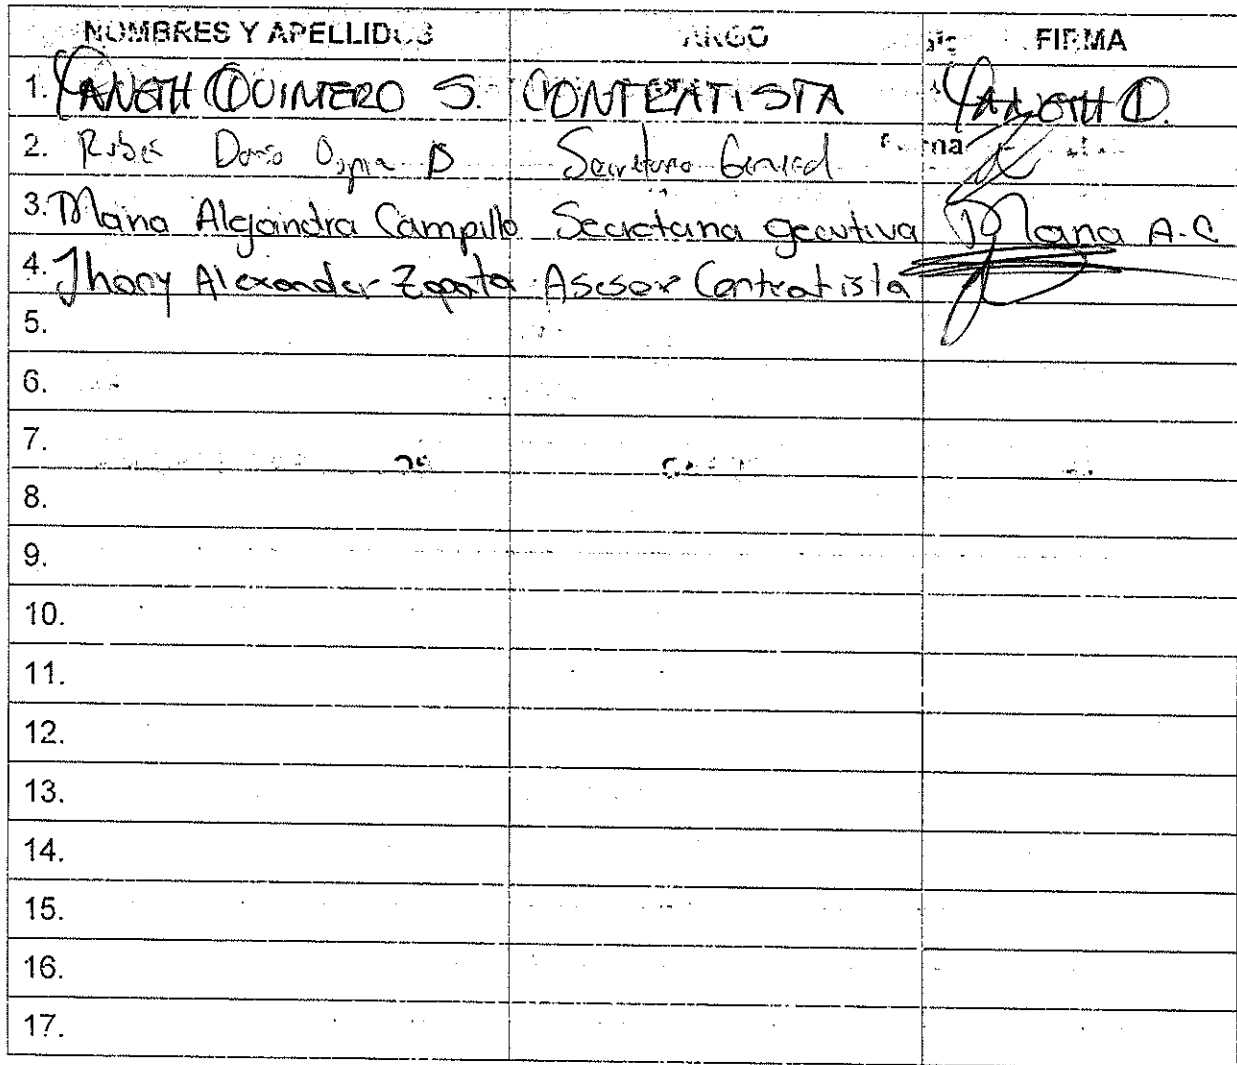 NOMBRES Y APELLIDOS CARGO FIRMA
1. YANETH QUINTERO S. CONTRATISTA YANETH Q.
2. Dario D Secretario General
3. Maria Alejandra Campillo Secretaria Ejecutiva Maria A-C
4. Jhony Alexander Zapata Asesor Contratista
5.
6.
7.
8.
9.
10.
11.
12.
13.
14.
15.
16.
17.